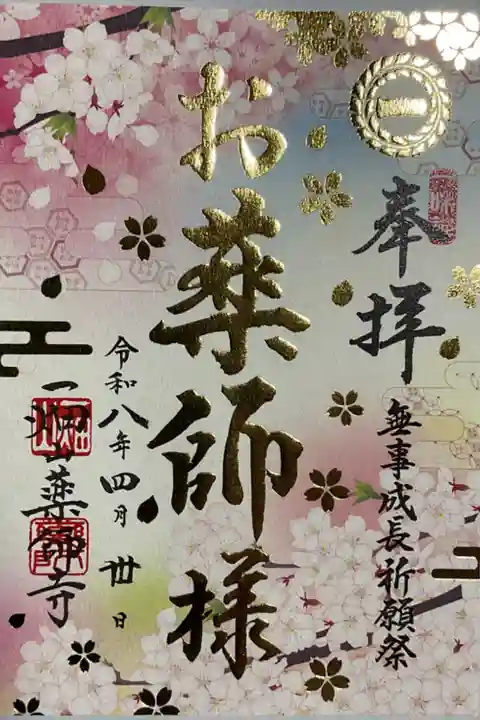 奉拝
無事成長祈願祭
お薬師様
令和八年四月卅日
一畑山薬師寺